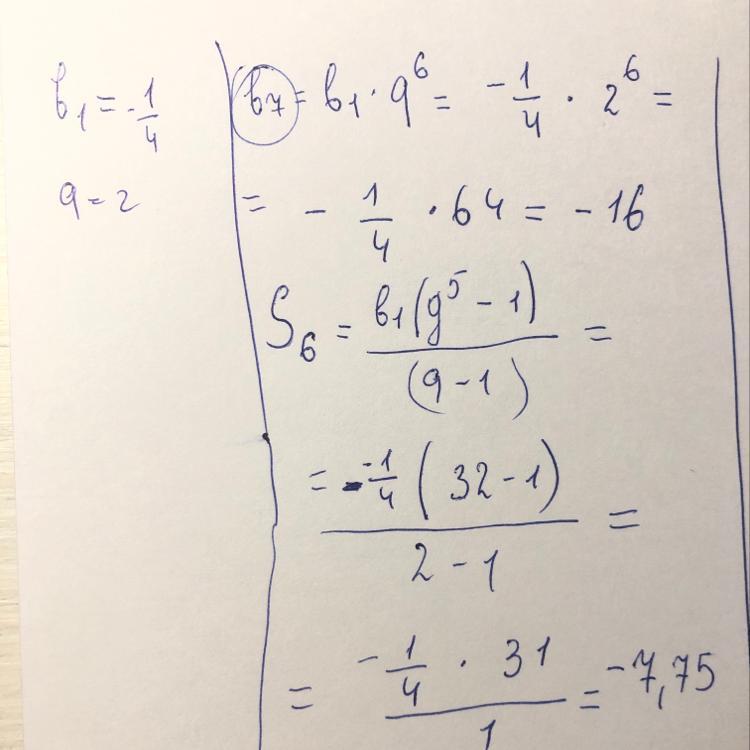 b₁ = -1/4
q = 2
b₇ = b₁ · q⁶ = -1/4 · 2⁶ =
= - 1/4 · 64 = -16
S₆ = b₁(q⁵ - 1)/(q - 1) =
= -1/4 (32 - 1)/2 - 1 =
= -1/4 · 31/1 = -7,75